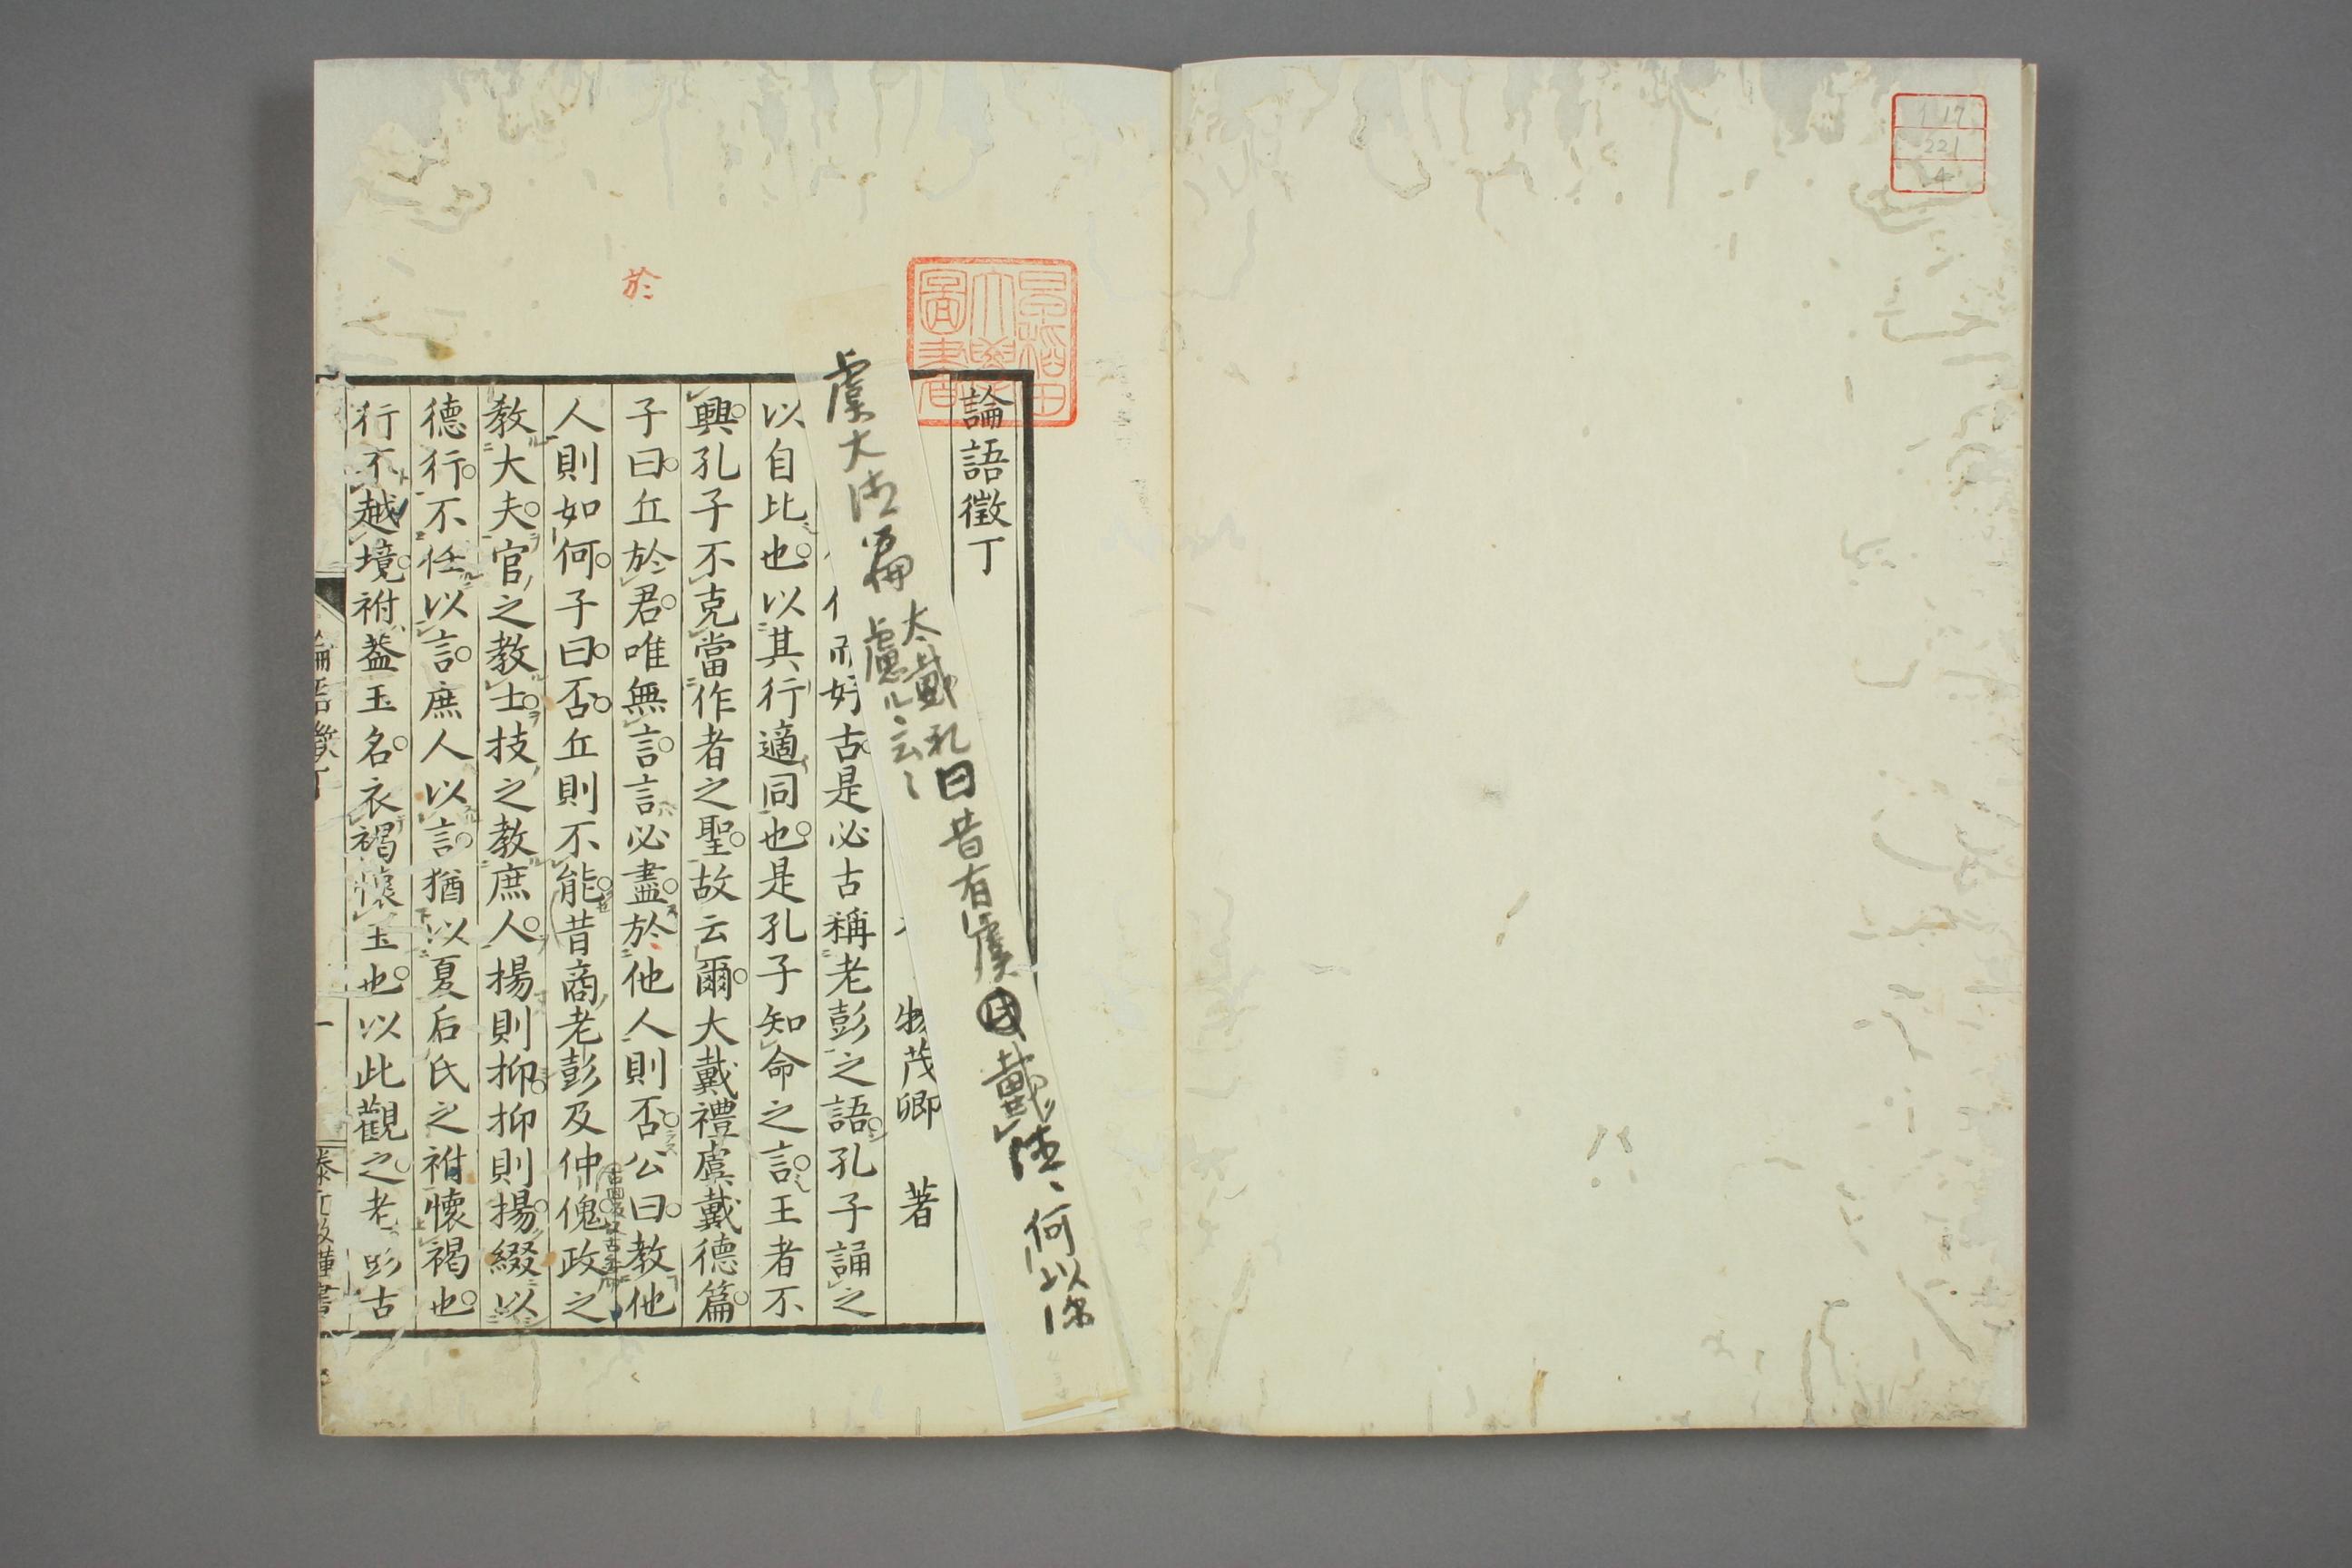 117
221
4
早稲田大學圖書
於
論語徵丁
物茂卿 著
好古是必古稱老彭之語孔子誦之
以自比也以其行適同也是孔子知命之言王者不
興孔子不克當作者之聖故云爾大戴禮虞戴德篇
子曰丘於君唯無言言必盡於他人則否公曰教他
人則如何子曰否丘則不能昔商老彭及仲傀政之
教大夫官之教士技之教庶人揚則抑抑則揚綴以
德行不任以言庶人以言猶以夏后氏之祔懷褐也
行不越境祔蓋玉名衣褐懷玉也以此觀之老彭古
虞大德篇
大戴礼曰昔有虞氏戴德何以深
慮ル云